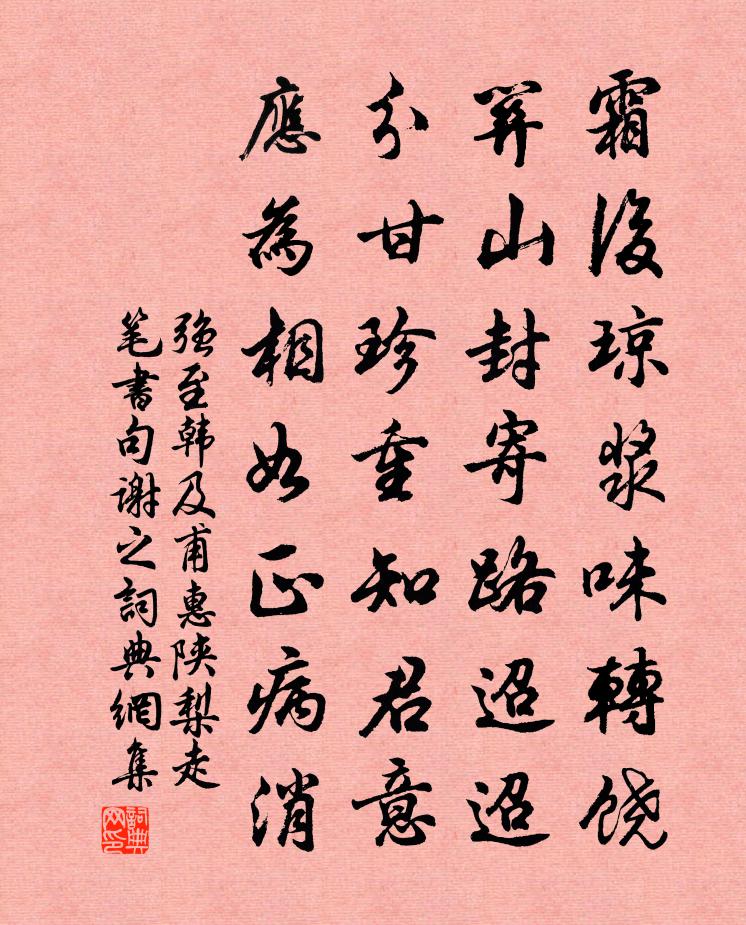 霜後琼浆味轉饶
关山封寄路迢迢
分甘珍重知君意
應為相如正病消
强至韩及甫惠陕梨走
笔書句謝之詞典網集
詞典网印